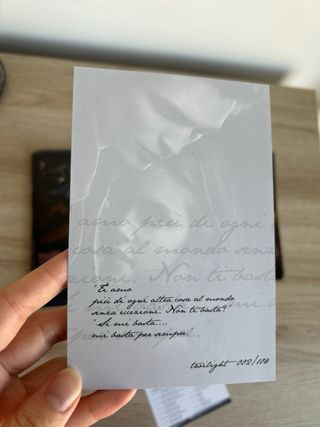 amo più di ogni
cosa al mondo senz
ezioni. Non ti basta
Ti amo
più di ogni altra cosa al mondo
senza eccezioni. Non ti basta?
"Sì mi basta....
mi basta per sempre".
twilight 002/108